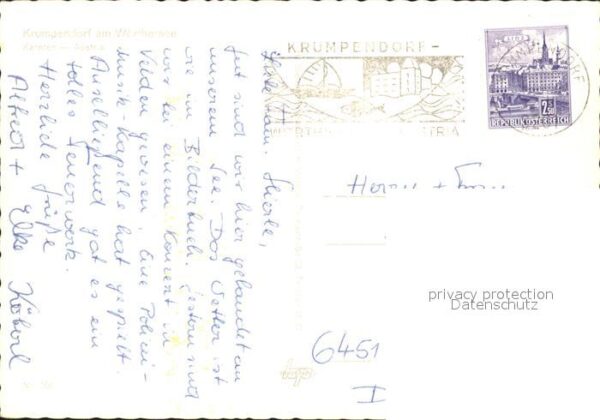 Krumpendorf am Wörthersee
Kärnten — Austria
KRUMPENDORF-
AUSTRIA
LINZ
2.50
REPUBLIK ÖSTERREICH
gut sind wir hier gelandet an
unserem See. Das Wetter ist
wie im Bilderbuch. Gestern sind
wir bei einem Konzert in
Velden gewesen. Eine Polizei-
Musik-Kapelle hat gespielt.
Anschließend gab es ein
tolles Feuerwerk.
Herzliche Grüße
Alfred + Elke
Herrn + Frau
privacy protection
Datenschutz
6451
I